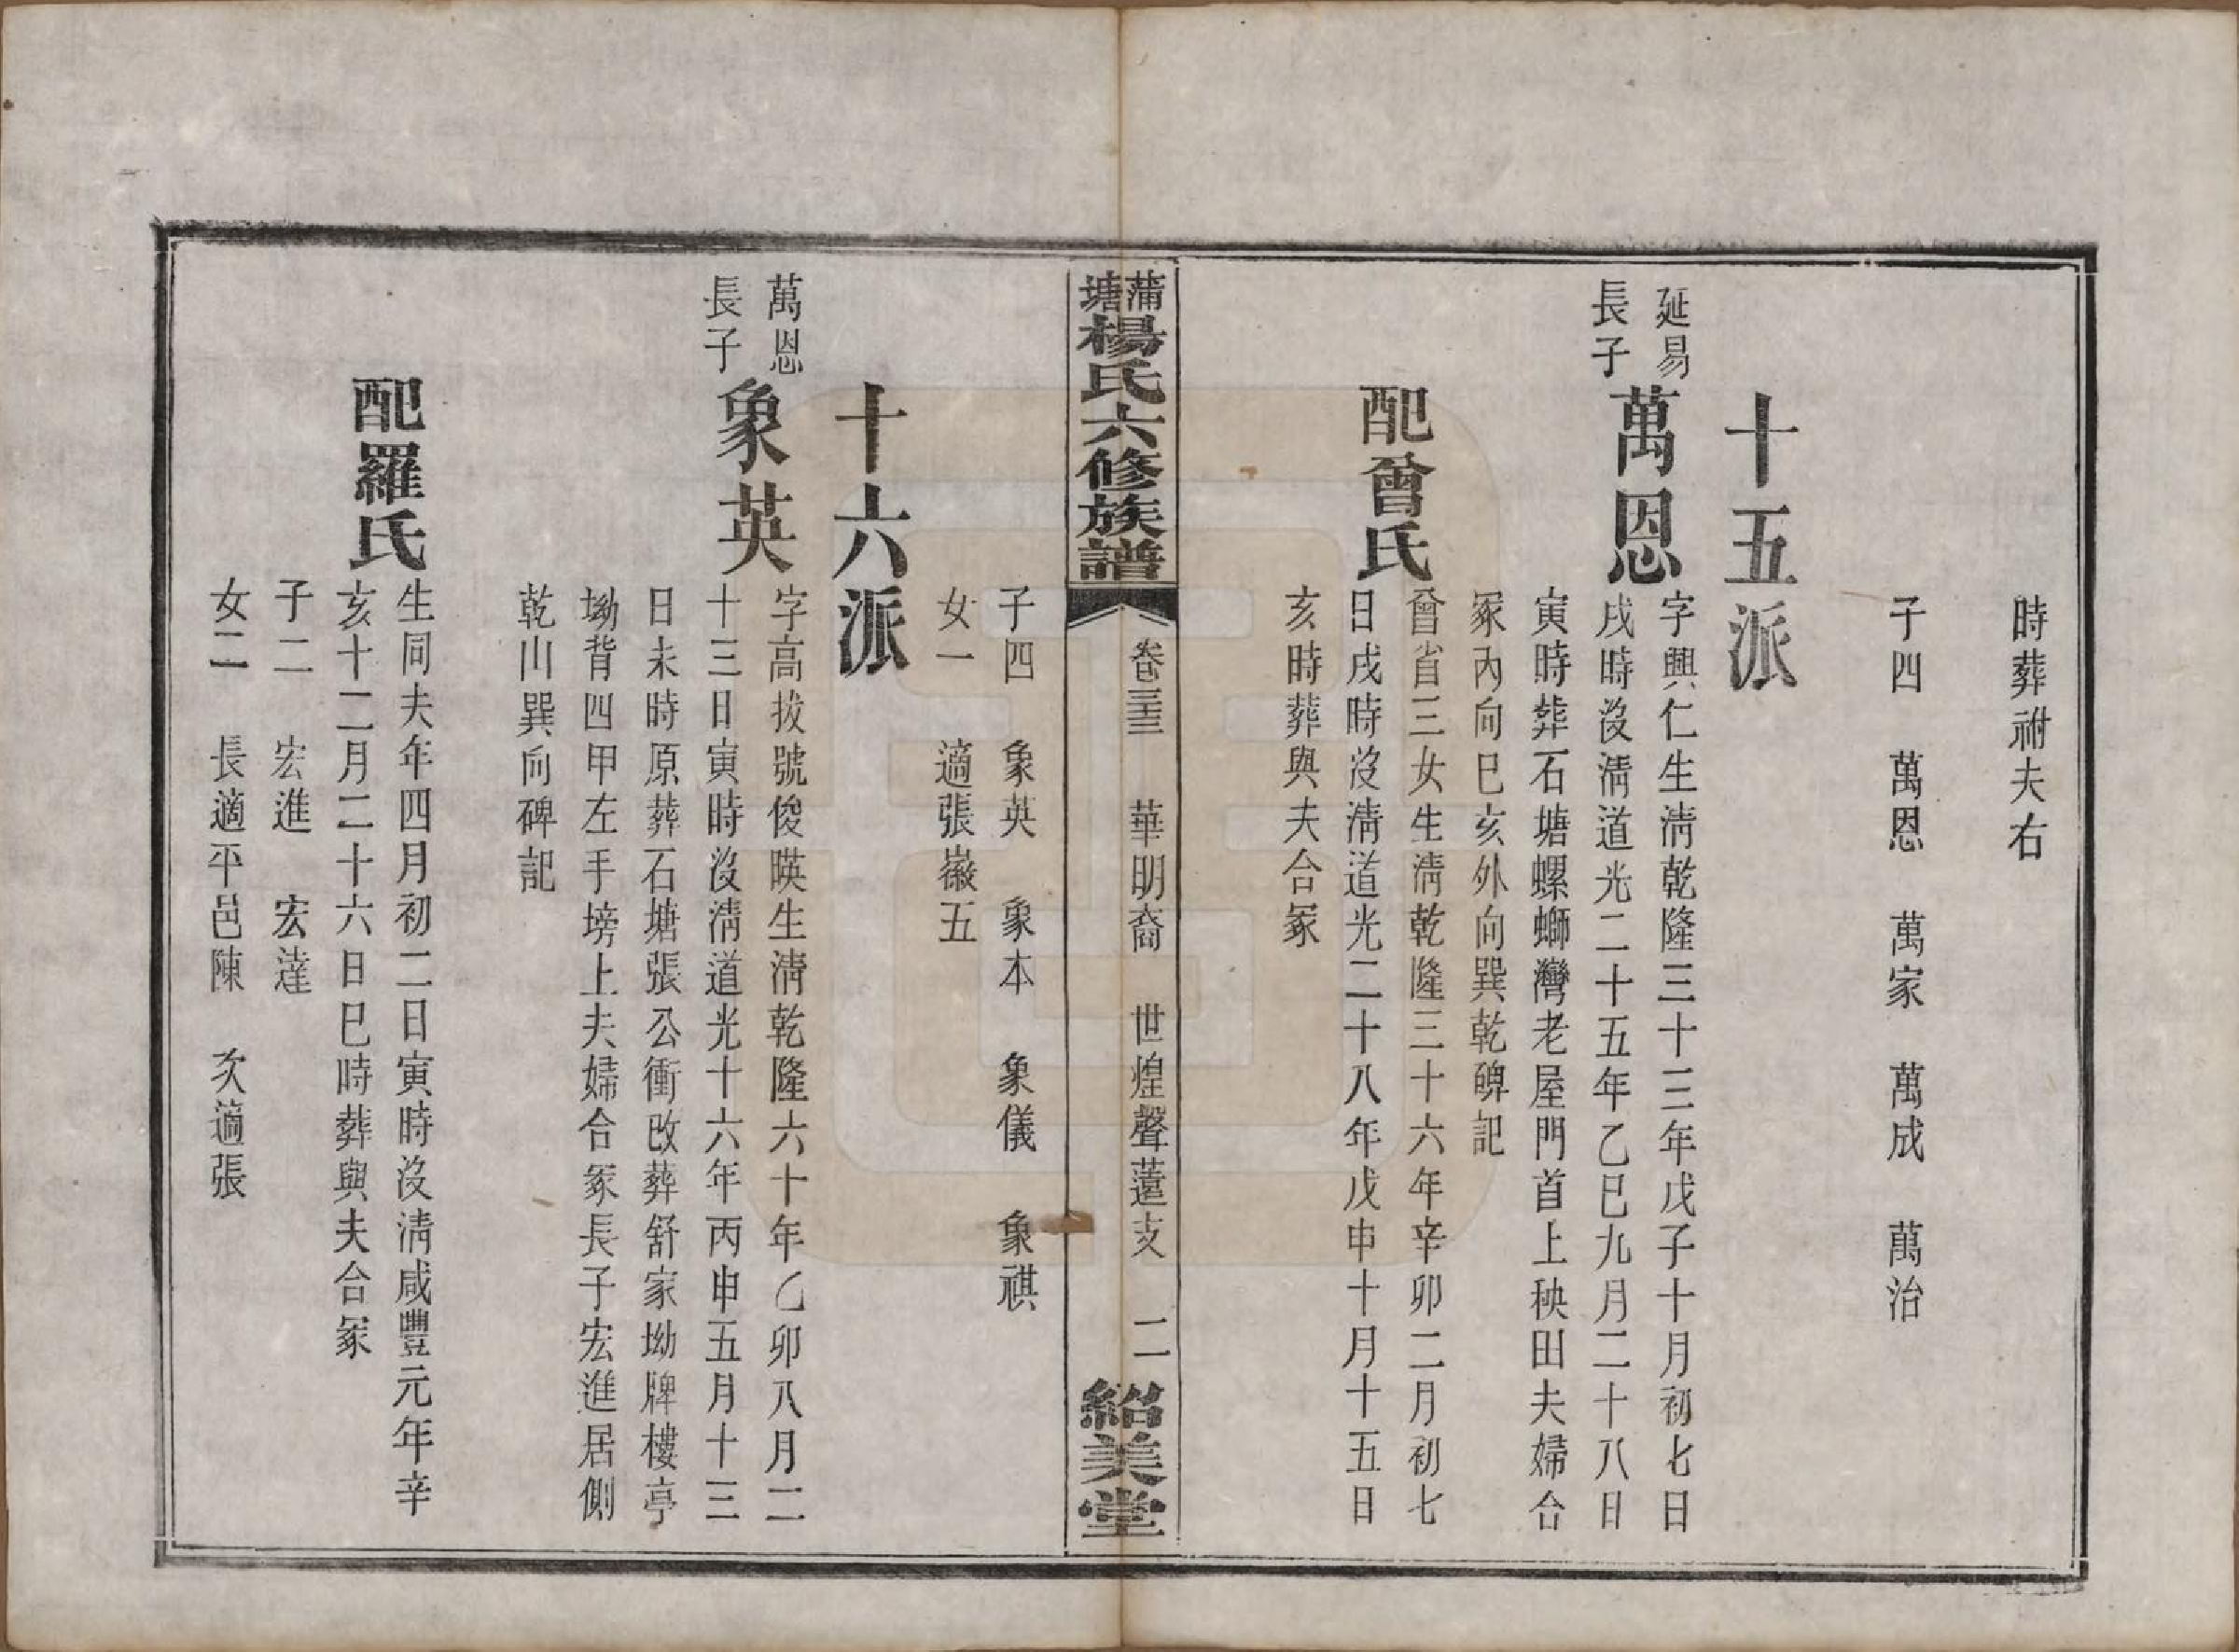 時葬祔夫右
子四　萬恩　萬家　萬成　萬治
十五派
延易
長子
萬恩
字興仁生淸乾隆三十三年戊子十月初七日
戌時沒淸道光二十五年乙巳九月二十八日
寅時葬石塘螺螄灣老屋門首上秧田夫婦合
冢內向巳亥外向巽乾碑記
配曾氏
曾省三女生淸乾隆三十六年辛卯二月初七
日戌時沒淸道光二十八年戊申十月十五日
亥時葬與夫合冢
蒲塘楊氏六修族譜
卷三十三　華明裔　世煌聲薳支　二
紹美堂
子四　象英　象本　象儀　象祺
女一　適張嶽五
十六派
萬恩
長子
象英
字高拔號俊暎生淸乾隆六十年乙卯八月二
十三日寅時沒淸道光十六年丙申五月十三
日未時原葬石塘張公衝改葬舒家坳牌樓亭
坳背四甲左手塝上夫婦合冢長子宏進居側
乾山巽向碑記
配羅氏
生同夫年四月初二日寅時沒淸咸豐元年辛
亥十二月二十六日巳時葬與夫合冢
子二　宏進　宏達
女二　長適平邑陳　次適張